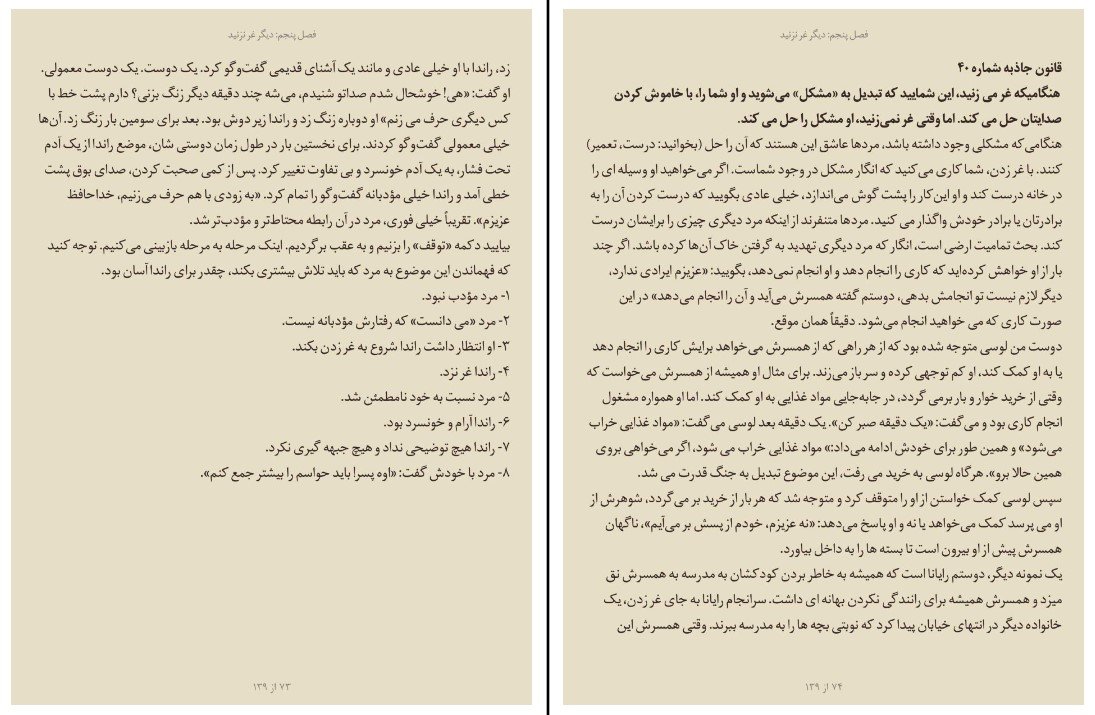 فصل پنجم: دیگر غر نزنید
زد، راندا با او خیلی عادی و مانند یک آشنای قدیمی گفت‌وگو کرد. یک دوست. یک دوست معمولی.
او گفت: «هی! خوشحال شدم صداتو شنیدم، می‌شه چند دقیقه دیگر زنگ بزنی؟ دارم پشت خط با
کس دیگری حرف می زنم» او دوباره زنگ زد و راندا زیر دوش بود. بعد برای سومین بار زنگ زد. آن‌ها
خیلی معمولی گفت‌وگو کردند. برای نخستین بار در طول زمان دوستی شان، موضع راندا از یک آدم
تحت فشار، به یک آدم خونسرد و بی تفاوت تغییر کرد. پس از کمی صحبت کردن، صدای بوق پشت
خطی آمد و راندا خیلی مؤدبانه گفت‌وگو را تمام کرد. «به زودی با هم حرف می‌زنیم، خداحافظ
عزیزم». تقریباً خیلی فوری، مرد در آن رابطه محتاط‌تر و مؤدب‌تر شد.
بیایید دکمه «توقف» را بزنیم و به عقب برگردیم. اینک مرحله به مرحله بازبینی می‌کنیم. توجه کنید
که فهماندن این موضوع به مرد که باید تلاش بیشتری بکند، چقدر برای راندا آسان بود.
۱- مرد مؤدب نبود.
۲- مرد «می دانست» که رفتارش مؤدبانه نیست.
۳- او انتظار داشت راندا شروع به غر زدن بکند.
۴- راندا غر نزد.
۵- مرد نسبت به خود نامطمئن شد.
۶- راندا آرام و خونسرد بود.
۷- راندا هیچ توضیحی نداد و هیچ جبهه گیری نکرد.
۸- مرد با خودش گفت: «اوه پسر! باید حواسم را بیشتر جمع کنم».
۷۳ از ۱۳۹
فصل پنجم: دیگر غر نزنید
قانون جاذبه شماره ۴۰
هنگامیکه غر می زنید، این شمایید که تبدیل به «مشکل» می‌شوید و او شما را، با خاموش کردن
صدایتان حل می کند. اما وقتی غر نمی‌زنید، او مشکل را حل می کند.
هنگامی‌که مشکلی وجود داشته باشد، مردها عاشق این هستند که آن را حل (بخوانید: درست، تعمیر)
کنند. با غر زدن، شما کاری می‌کنید که انگار مشکل در وجود شماست. اگر می‌خواهید او وسیله ای را
در خانه درست کند و او این‌کار را پشت گوش می‌اندازد، خیلی عادی بگویید که درست کردن آن را به
برادرتان یا برادر خودش واگذار می کنید. مردها متنفرند از اینکه مرد دیگری چیزی را برایشان درست
کند. بحث تمامیت ارضی است، انگار که مرد دیگری تهدید به گرفتن خاک آن‌ها کرده باشد. اگر چند
بار از او خواهش کرده‌اید که کاری را انجام دهد و او انجام نمی‌دهد، بگویید: «عزیزم ایرادی ندارد،
دیگر لازم نیست تو انجامش بدهی، دوستم گفته همسرش می‌آید و آن را انجام می‌دهد» در این
صورت کاری که می خواهید انجام می‌شود. دقیقاً همان موقع.
دوست من لوسی متوجه شده بود که از هر راهی که از همسرش می‌خواهد برایش کاری را انجام دهد
یا به او کمک کند، او کم توجهی کرده و سر باز می‌زند. برای مثال او همیشه از همسرش می‌خواست که
وقتی از خرید خوار و بار برمی گردد، در جابه‌جایی مواد غذایی به او کمک کند. اما او همواره مشغول
انجام کاری بود و می‌گفت: «یک دقیقه صبر کن». یک دقیقه بعد لوسی می‌گفت: «مواد غذایی خراب
می‌شود» و همین طور برای خودش ادامه می‌داد:» مواد غذایی خراب می شود، اگر می‌خواهی بروی
همین حالا برو». هر گاه لوسی به خرید می رفت، این موضوع تبدیل به جنگ قدرت می شد.
سپس لوسی کمک خواستن از او را متوقف کرد و متوجه شد که هر بار از خرید بر می‌گردد، شوهرش از
او می پرسد کمک می‌خواهد یا نه و او پاسخ می‌دهد: «نه عزیزم، خودم از پسش بر می‌آیم»، ناگهان
همسرش پیش از او بیرون است تا بسته ها را به داخل بیاورد.
یک نمونه دیگر، دوستم رایانا است که همیشه به خاطر بردن کودکشان به مدرسه به همسرش نق
میزد و همسرش همیشه برای رانندگی نکردن بهانه ای داشت. سرانجام رایانا به جای غر زدن، یک
خانواده دیگر در انتهای خیابان پیدا کرد که نوبتی بچه ها را به مدرسه ببرند. وقتی همسرش این
۷۴ از ۱۳۹